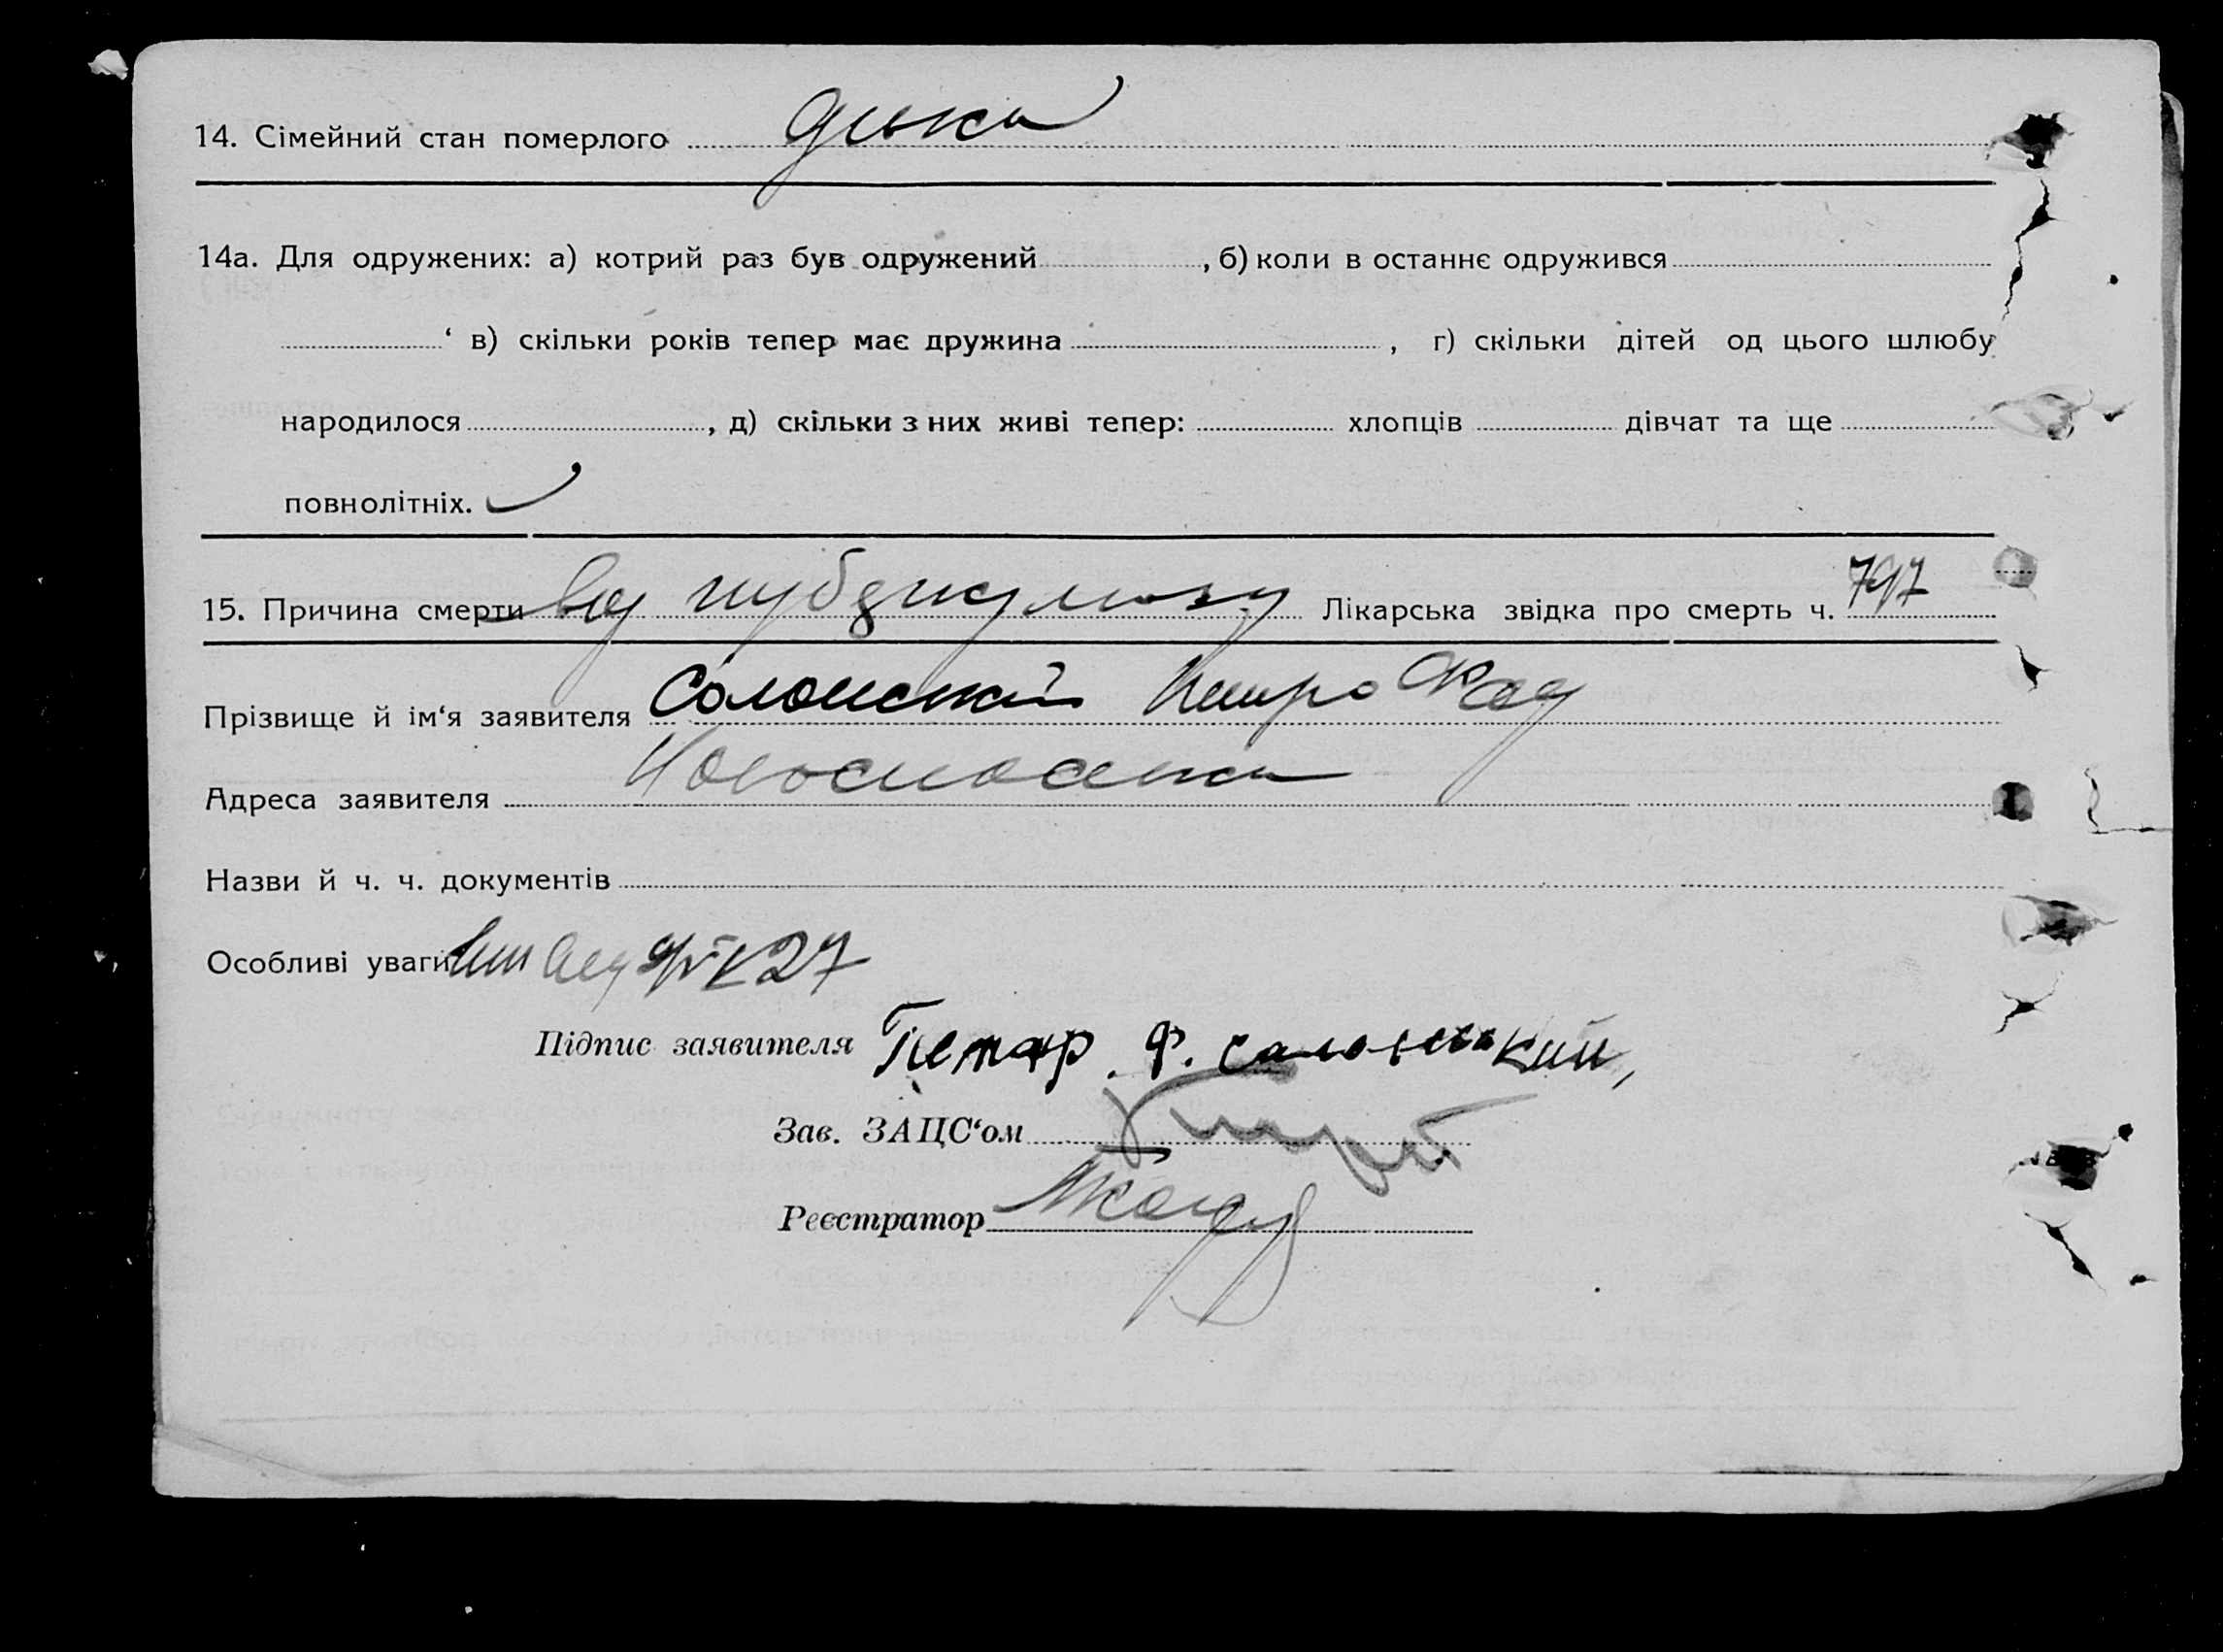 14. Сімейний стан померлого
14а. Для одружених: а) котрий раз був одружений , б) коли в останнє одружився
‘ в) скільки років тепер має дружина , г) скільки дітей од цього шлюбу
народилося , д) скільки з них живі тепер: хлопців дівчат та ще
повнолітніх.
15. Причина смерти від туберкульозу Лікарська звідка про смерть ч. 797
Прізвище й ім‘я заявителя Солонский Петро Фед
Адреса заявителя
Назви й ч. ч. документів
Особливі уваги 27
Підпис заявителя Петар. Ф. Салонський,
Зав. ЗАЦС‘ом
Реєстратор